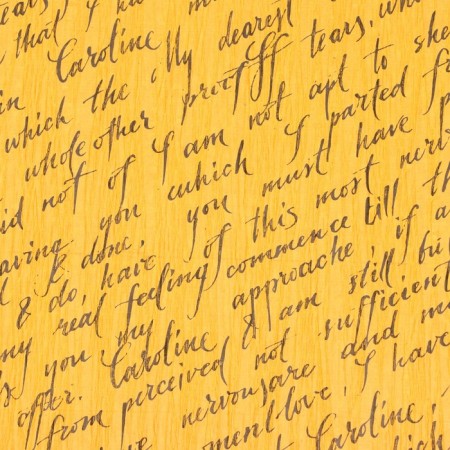 tears,
that I
in Caroline
which the My dearest
whole other proof tears,
did not of I am not apt to she
having you which I parted
& done, you must have
& do, have of this most
my real feeling commence till
you, my approache, if
offer. Caroline & am still
from perceived not sufficient
nervousare and
love, I have
Caroline,